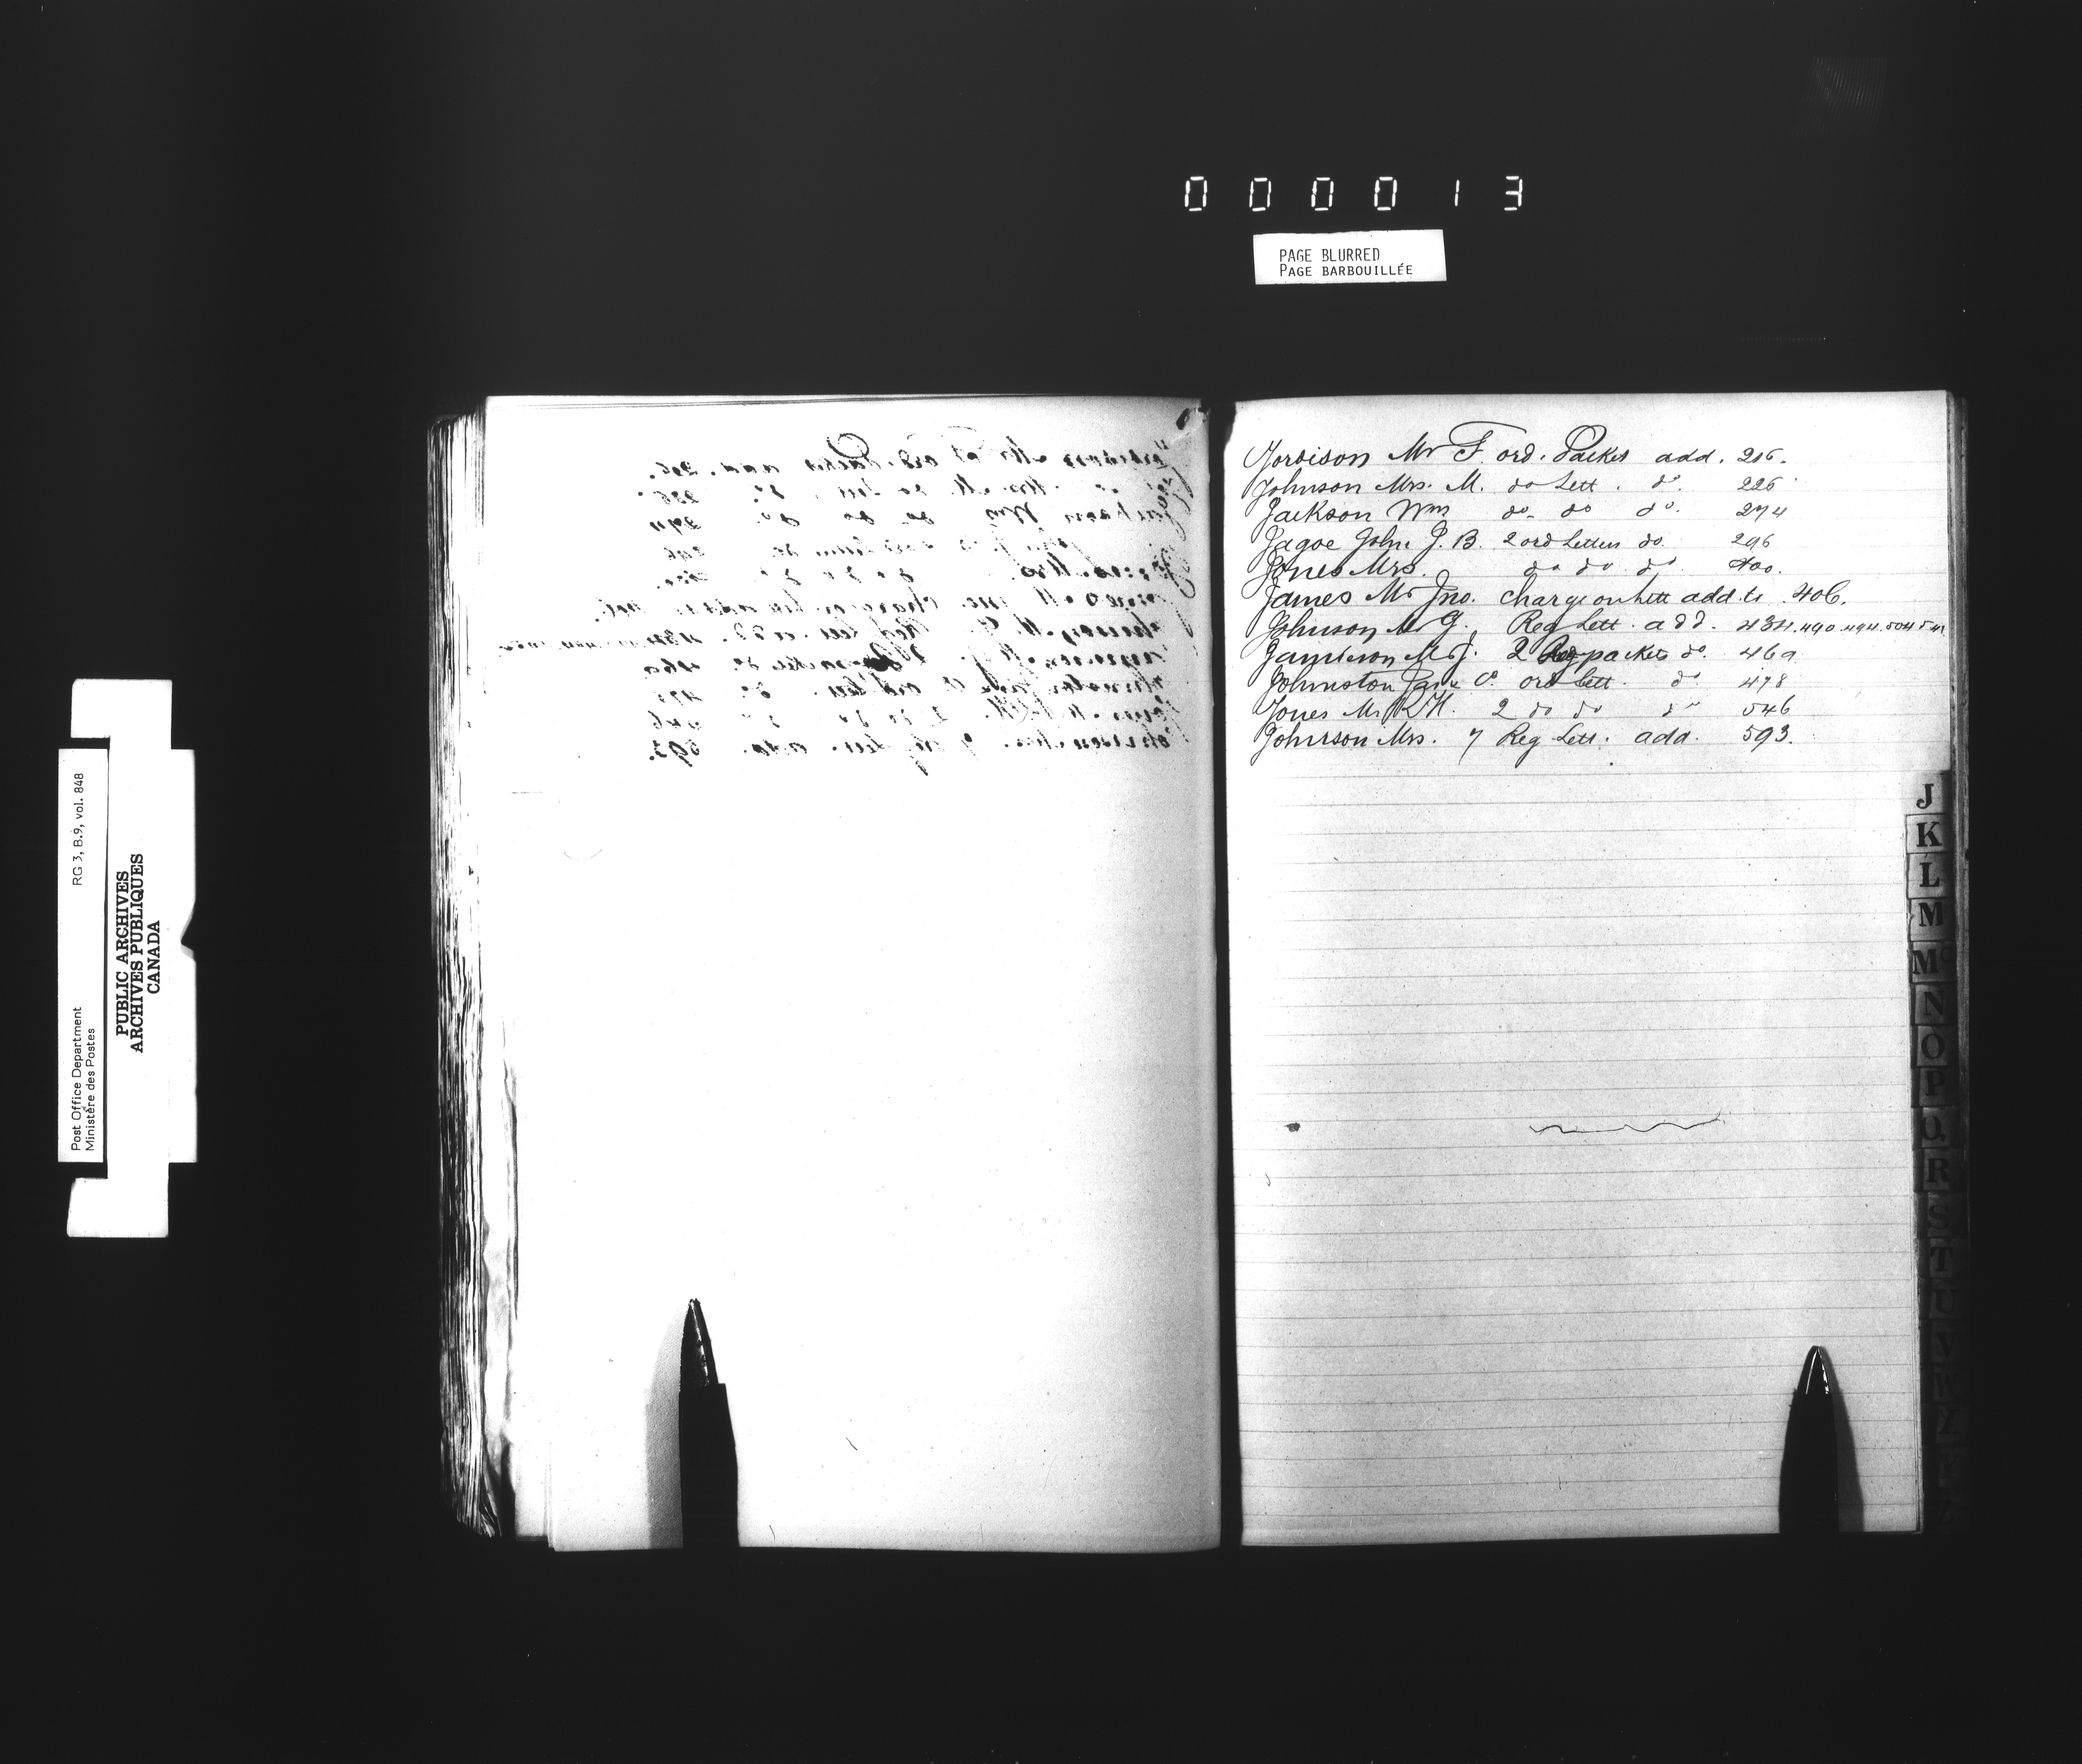 000013
PAGE BLURRED
PAGE BARBOUILLÉE
Jordison Mr F. ord. Packet add. 216.
Johnson Mrs. M. do Lett. do. 226
Jackson Wm do. do do. 274
Jagoe John J. B. 2 ord Letters do. 296
Jones Mrs. do do do 400.
James Mr Jno. charge on Lett add. to 406.
Johnson Mr G. Reg Lett. add. 434. 490. 494. 504
Jamieson Mr J. 2 Reg packets do. 469
Johnston Co. ord Lett. do 478
Jones Mr R H. 2 do do do 546
Johnson Mrs. 7 Reg Lett. add. 593.
J
K
L
M
Mc
N
O
P
Q
R
S
T
U
V
RG 3, B.9, vol. 848
Post Office Department
Ministère des Postes
PUBLIC ARCHIVES
ARCHIVES PUBLIQUES
CANADA